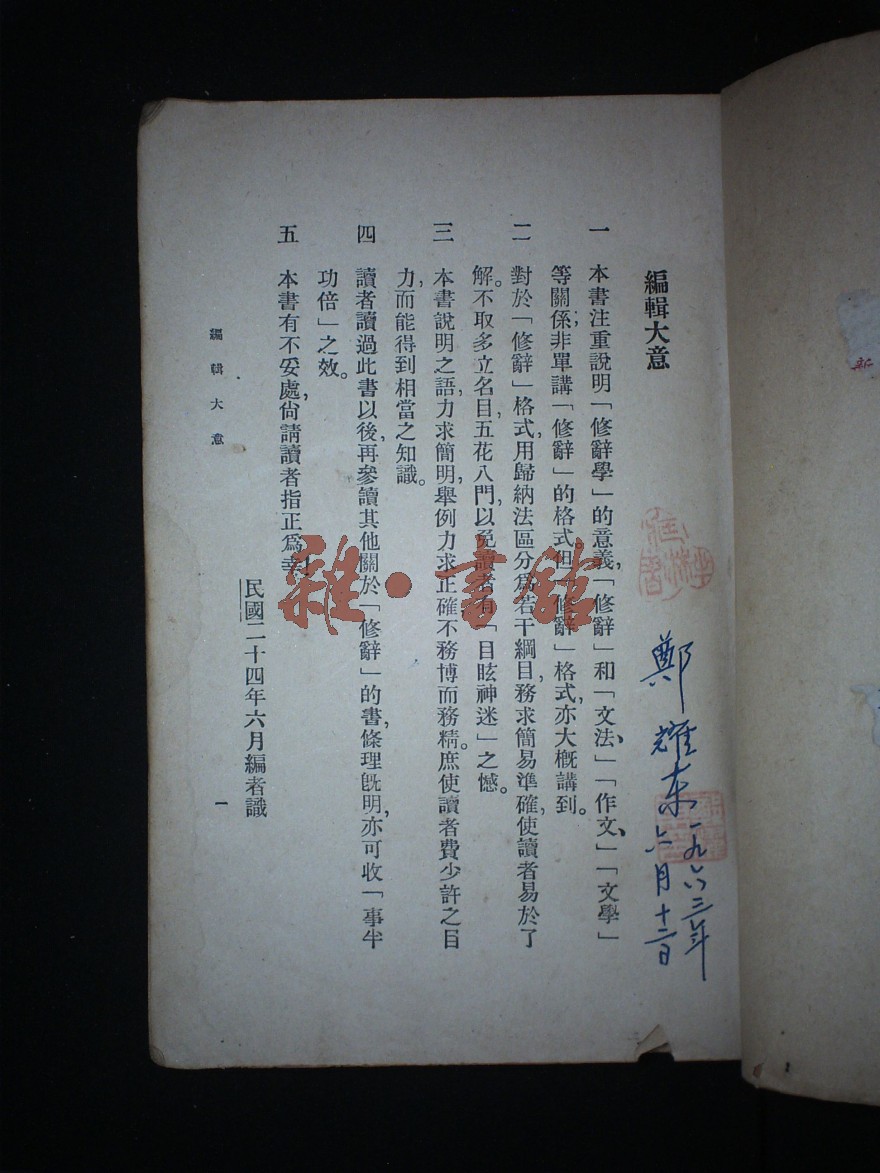 編輯大意
一　本書注重說明「修辭學」的意義，「修辭」和「文法」、「作文」、「文學」
等關係，非單講「修辭」的格式。但「修辭」格式，亦大概講到。
二　對於「修辭」格式，用歸納法區分爲若干綱目，務求簡易準確，使讀者易於了
解。不取多立名目，五花八門，以免讀者有「目眩神迷」之憾。
三　本書說明之語，力求簡明，舉例力求正確，不務博而務精。庶使讀者費少許之目
力，而能得到相當之知識。
四　讀者讀過此書以後，再參讀其他關於「修辭」的書，條理既明，亦可收「事半
功倍」之效。
五　本書有不妥處，尙請讀者指正爲幸
民國二十四年六月編者識
編輯大意
一
鄭耀东一九六三年
六月十二日
雜·書館